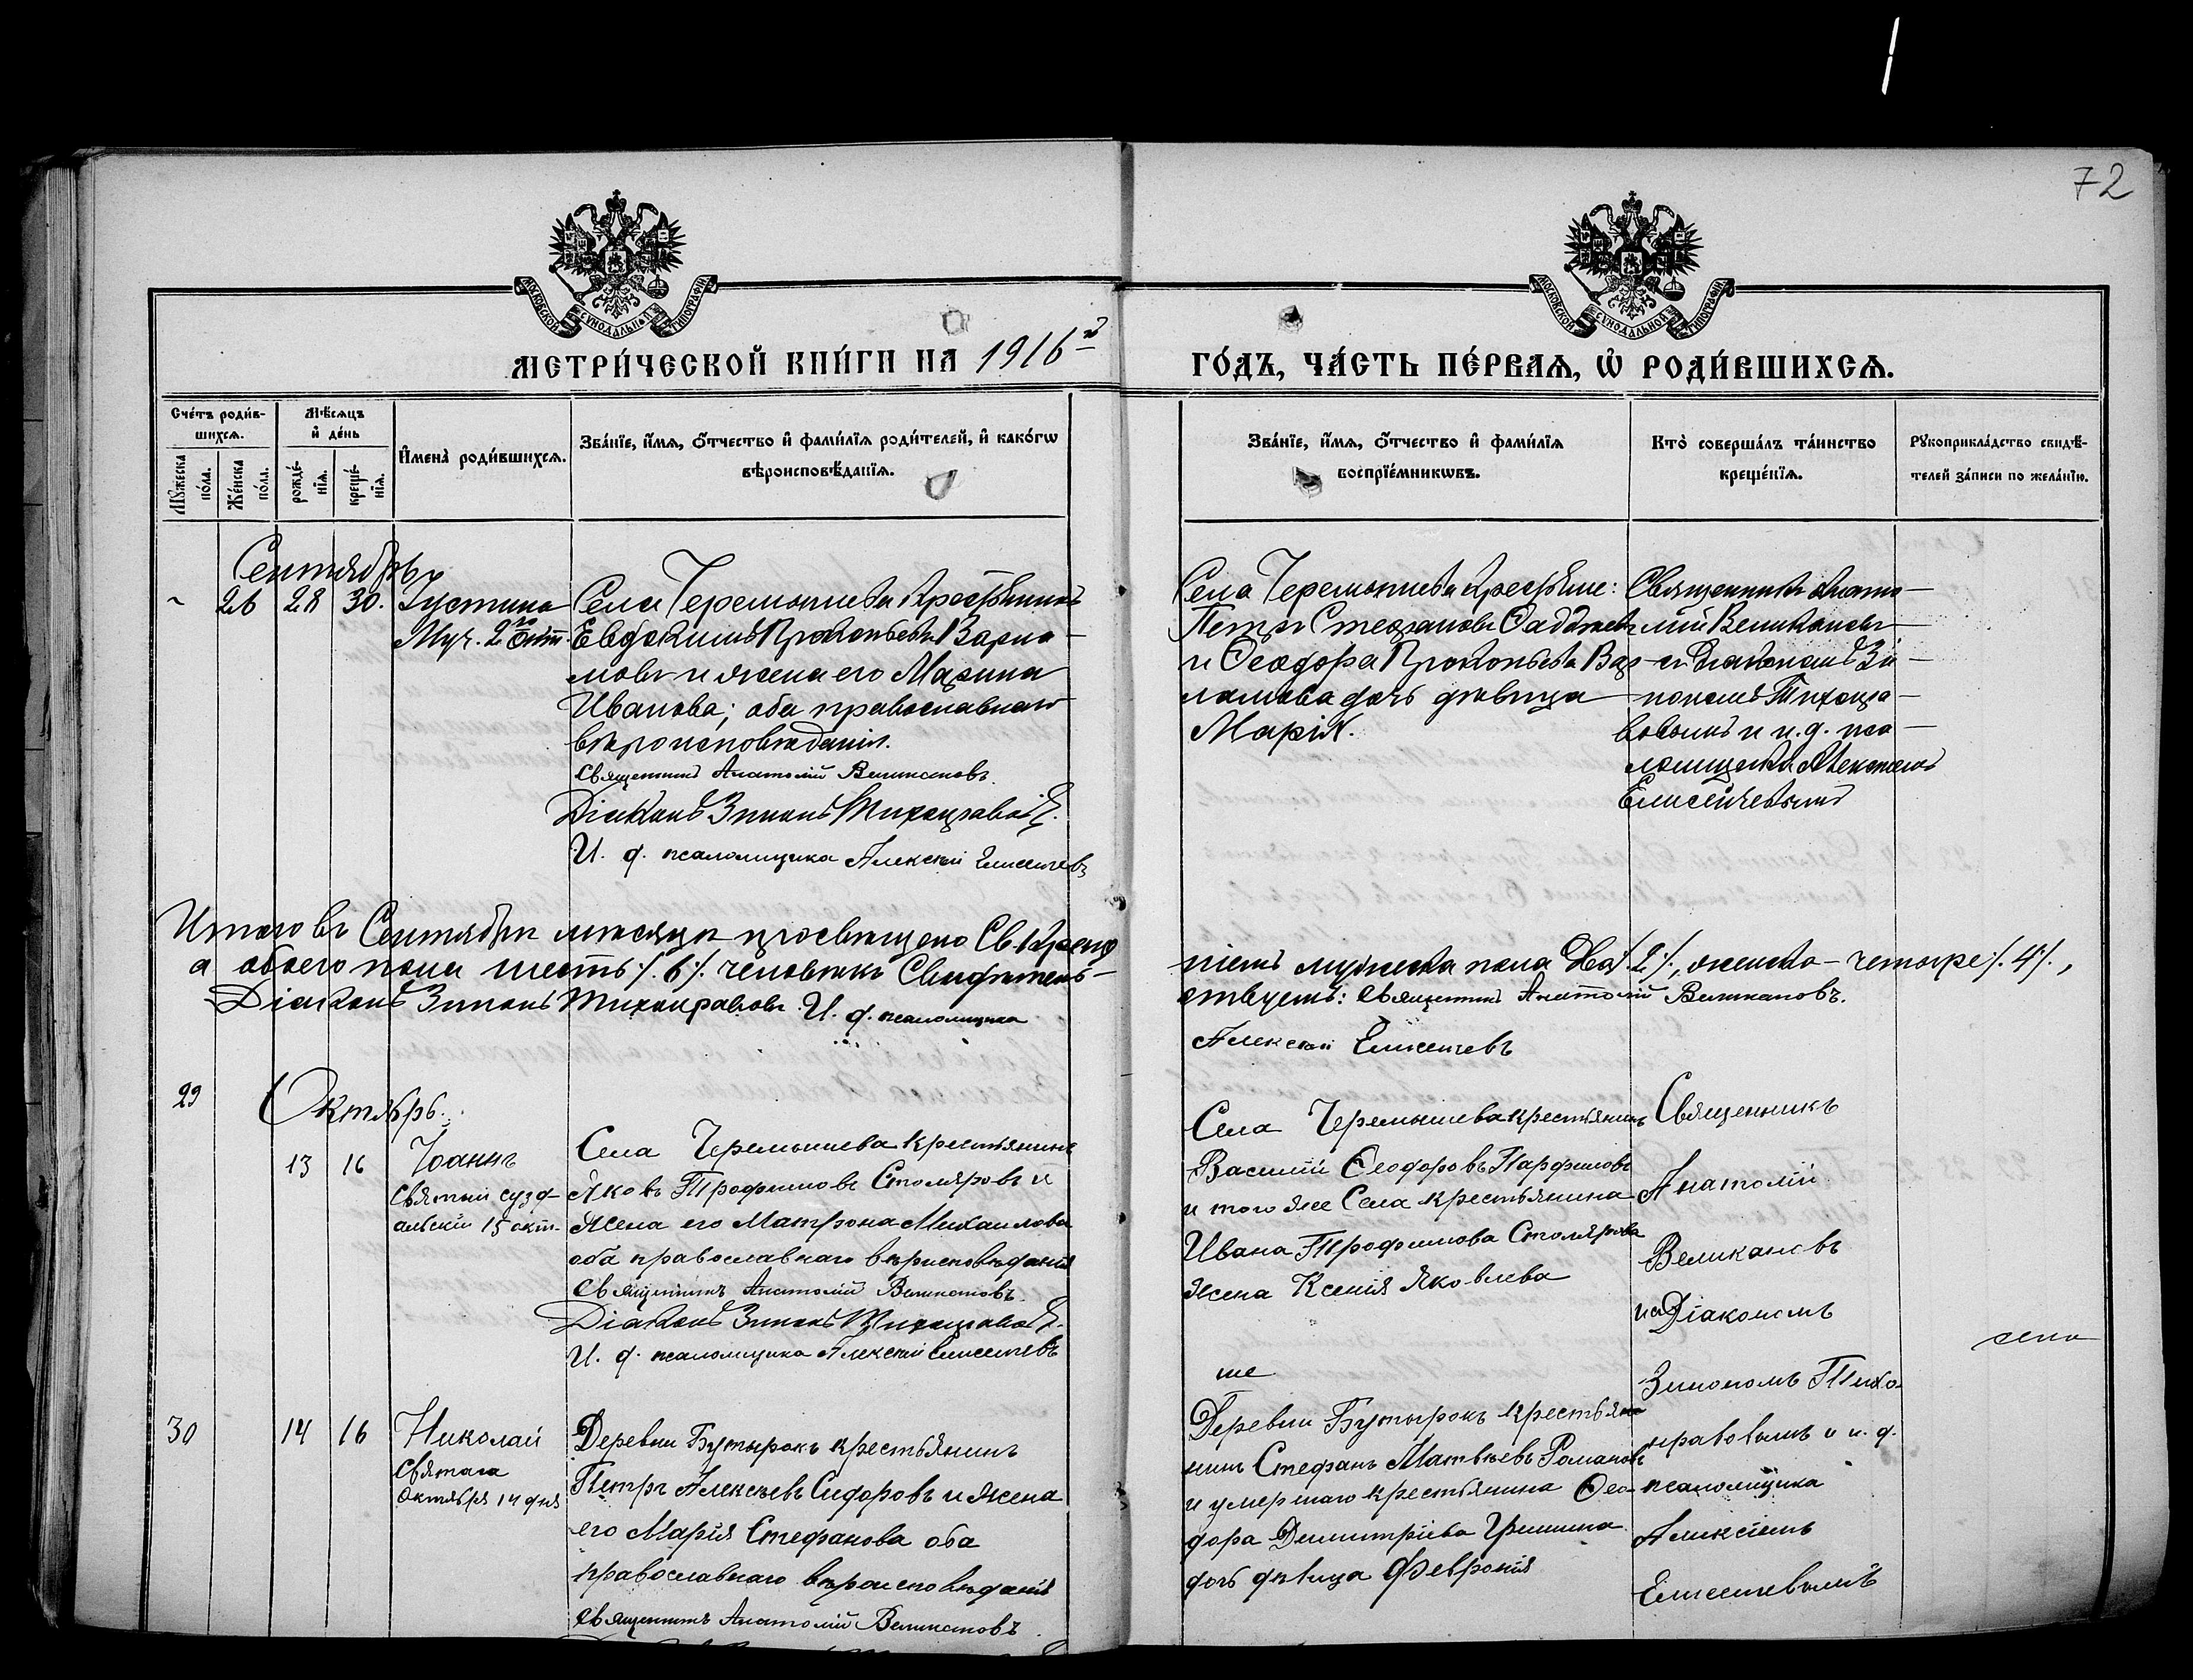 72
МОСКОВСКОЙ СѴНОДАЛЬНОЙ ТИПОГРАФІИ
МОСКОВСКОЙ СѴНОДАЛЬНОЙ ТИПОГРАФІИ
МЕТРИ́ЧЕСКОЙ КНИ́ГИ НА 1916й
ГО́ДЪ, ЧА́СТЬ ПЕ́РВАѦ, Ѡ҆ РОДИ́ВШИХСѦ.
Сче́тъ роди́в-
шихсѧ.
Мꙋ́жеска по́ла.
Же́нска по́ла.
Мѣ́сѧцъ
и҆ де́нь
рожде́-
нїѧ.
креще́-
нїѧ.
И҆мена̀ роди́вшихсѧ.
Зва́нїе, и҆́мѧ, ѻ҆́тчество и҆ фами́лїѧ роди́телей, и҆ како́гѡ
вѣроисповѣ́данїѧ.
Зва́нїе, и҆́мѧ, ѻ҆́тчество и҆ фами́лїѧ
воспрїе́мникѡвъ.
Кто̀ соверша́лъ та́инство
креще́нїѧ.
Рꙋкоприкла́дство свидѣ́-
телей за́писи по жела́нїю.
Сентябрь
26 28 30. Іустина
Муч. 2го Окт.
Села Черемышева Крестьянинъ
Евдокимъ Прокопьевъ Варла-
мовъ и жена его Марина
Иванова; оба православнаго
вѣроисповѣданія.
Священникъ Анатолій Великановъ.
Діаконъ Зинонъ Тихонравовъ.
И. д. псаломщика Алексѣй Елисеичевъ
Села Черемышева крестьяне:
Петръ Стефановъ Фаддѣевъ
и Ѳеодора Прокопьева Вар-
ламова дочь дѣвица
Марія.
Священникъ Анато-
лій Великановъ
съ діакономъ Зи-
нономъ Тихонра-
вовымъ и и. д. пса-
ломщика Алексѣемъ
Елисеичевымъ
Итого въ Сентябрѣ мѣсяцѣ просвѣщено Св. Креще
ніемъ мужеска пола два/. 2/., женска - четыре/. 4/.,
а обоего пола шесть/. 6/. человѣкъ Свидѣтель-
ствуемъ: Священникъ Анатолій Великановъ.
Діаконъ Зинонъ Тихонравовъ. И. д. псаломщика
Алексѣй Елисеичевъ
Октябрь.
29 13 16 Іоаннъ
Святый сузд-
альскій 15 окт.
Села Черемышева крестьянинъ
Яковъ Трофимовъ Столяровъ и
Жена его Матрона Михаилова
оба православнаго вѣрисповѣданія
Священникъ Анатолій Великановъ.
Діаконъ Зинонъ Тихонравовъ.
И. д. псаломщика Алексѣй Елисеичевъ
Села Черемышева крестьянинъ
Василій Ѳеодоровъ Парфиловъ
и того же Села крестьянина
Ивана Трофимова Столярова
жена Ксенія Яковлева
Священникъ
Анатолій
Великановъ
Діакономъ
Зинономъ Тихо-
нравовымъ и и. д.
псаломщика
Алексіемъ
Елисеичевымъ
30 14 16 Николай
Святаго
Октября 14 дня
Деревни Бутырокъ крестьянинъ
Петръ Алексѣевъ Сидоровъ и жена
его Марія Стефанова оба
православнаго вѣроисповѣданія
Священникъ Анатолій Великановъ.
Деревни Бутырокъ крестьян
нинъ Стефанъ Матвѣевъ Романовъ
и умершаго крестьянина Ѳео-
дора Димитріева Гришина
дочь дѣвица Февронія